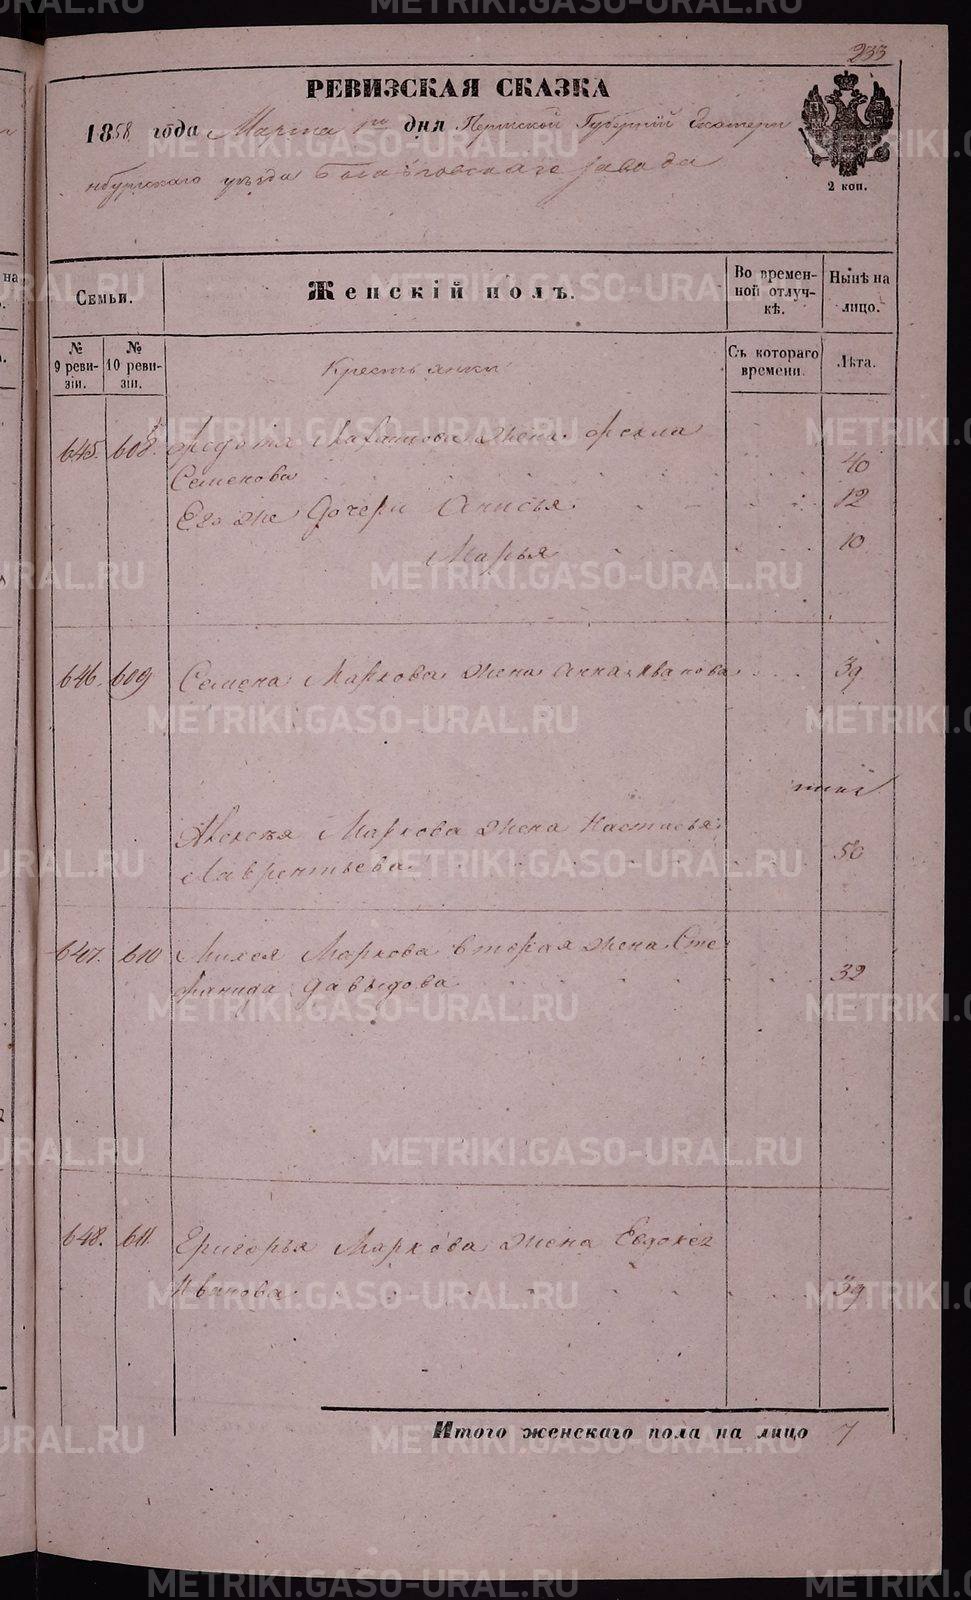 233
РЕВИЗСКАЯ СКАЗКА
1858 года Марта 1го дня Пермской Губерніи Екатерин
нбургскаго уѣзда завода
2 коп.
Семьи.
Женскій полъ.
Во времен-
ной отлуч-
кѣ.
Нынѣ на
лицо.
№
9 реви-
зіи.
№
10 реви-
зіи.
Крестьянки
Съ котораго
времени.
Лѣта.
645. 608. Федота жена Фекла
Семенова 40
Его же дочери Анисья 12
Марья 10
646. 609 Семена Маркова жена Анна Иванова 39
Алексѣя Маркова жена Настасья
Лаврентьева 50
647. 610 Михея Маркова вторая жена Сте
фанида Давыдова 32
648. 611. Григорья Маркова жена Евдокея
Иванова 39
Итого женскаго пола на лицо 7
METRIKI.GASO-URAL.RU